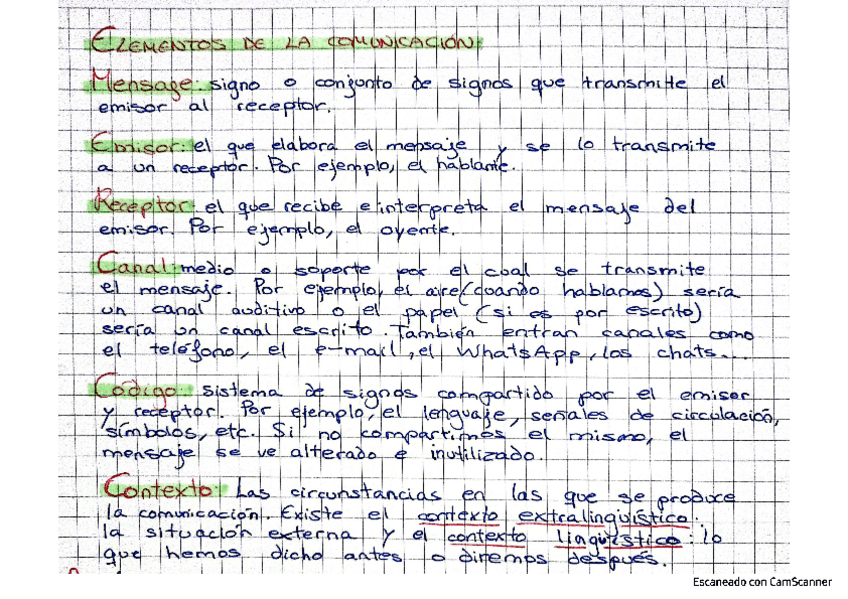 ELEMENTOS DE LA COMUNICACIÓN:
Mensaje: signo o conjunto de signos que transmite el
emisor al receptor.
Emisor: el que elabora el mensaje y se lo transmite
a un receptor. Por ejemplo, el hablante.
Receptor: el que recibe e interpreta el mensaje del
emisor. Por ejemplo, el oyente.
Canal: medio o soporte por el cual se transmite
el mensaje. Por ejemplo, el aire (cuando hablamos) sería
un canal auditivo o el papel (si es por escrito)
sería un canal escrito. También entran canales como
el teléfono, el e-mail, el WhatsApp, los chats...
Código: sistema de signos compartido por el emisor
y receptor. Por ejemplo, el lenguaje, señales de circulación,
símbolos, etc. Si no compartimos el mismo, el
mensaje se ve alterado e inutilizado.
Contexto: Las circunstancias en las que se produce
la comunicación. Existe el contexto extralingüístico:
la situación externa y el contexto lingüístico: lo
que hemos dicho antes o diremos después.
Escaneado con CamScanner